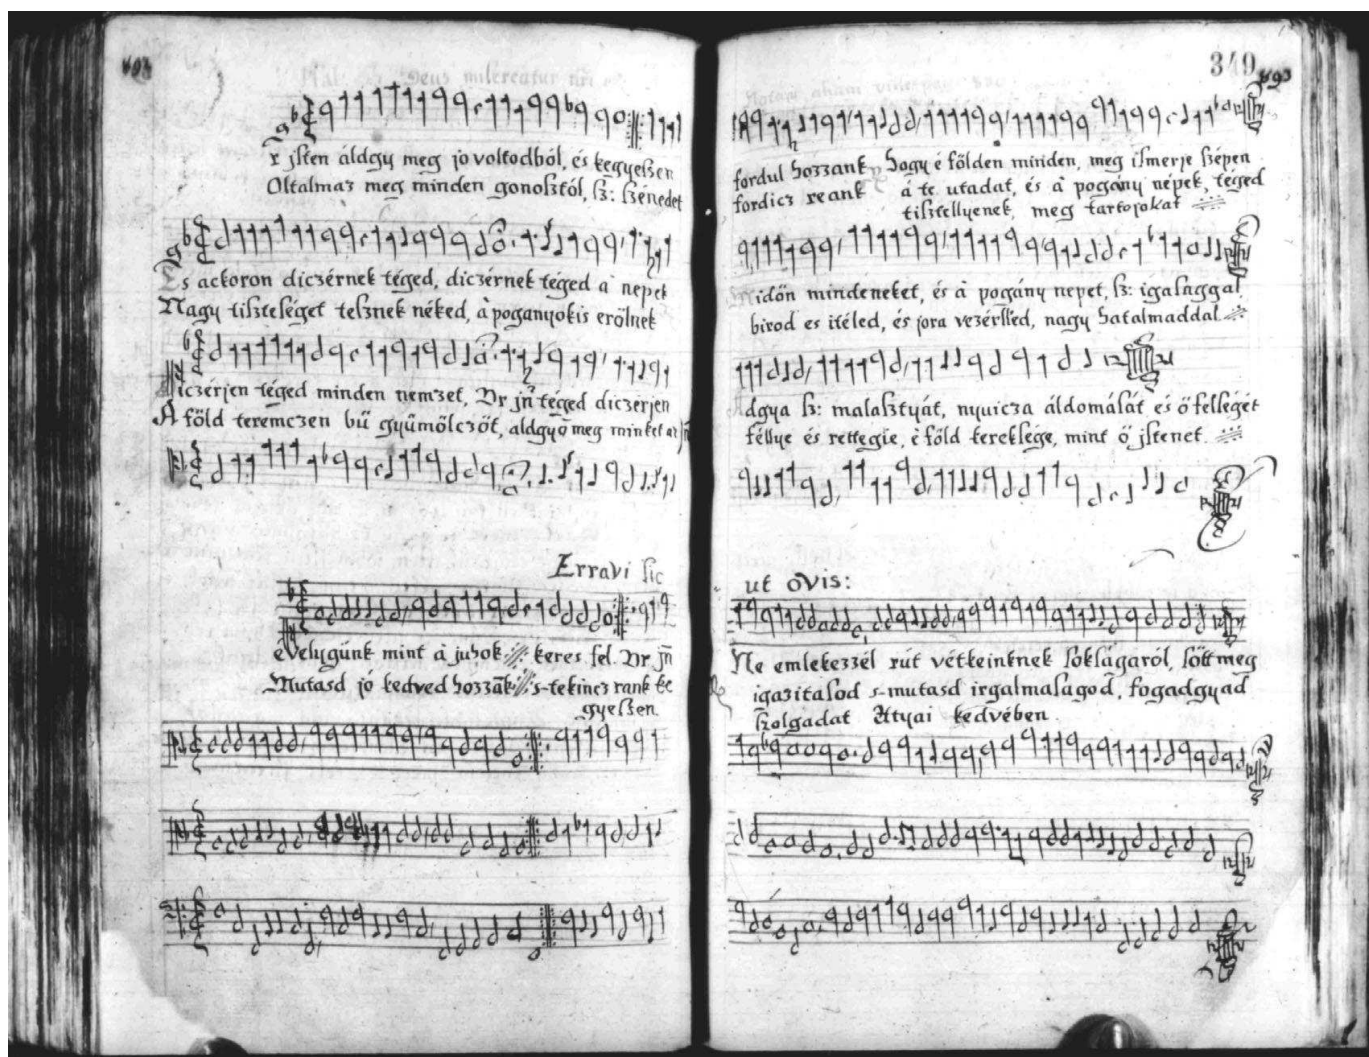 Deus misereatur nri
r jsten aldgy meg jo voltodból, és kegyeßen
Oltalmaz meg minden gonoßtól, ß: ßénedet
s ackoron diczérnek téged, diczérnek téged à nepek
Nagy tißteséget teßnek néked, à poganyokis erölnek
iczérjen téged minden nemzet, Vr jñ téged diczerjen
A föld teremczen bű gyűmölczöt, aldgyō meg minket az jñ
Erravi sic
evelygünk mint à juhok keres fel. Vr jñ
Mutasd jó kedved hozzāk s-tekincz rank ke
gyeßen
349
fordul hozzank hogy é földen minden, meg ismerje ßépen
fordicz reank à te utadat, és à pogány népek, téged
tißtellyenek, meg tartojokat
időn mindeneket, és à pogány nepet, ß: igasaggal
birod es itéled, és jora vezérlled, nagy hatalmaddal
dgya ß: malaßtyát, nyuicza áldomását es ő felseget
féllye és rettegie, é föld tereksége, mint ő jstenet.
ut ovis:
Ne emlekezzél rút vétkeinknek soksagaról, sőtt meg
igazitasod s-mutasd irgalmasagod, fogadgyad
ßolgadat Atyai kedvében